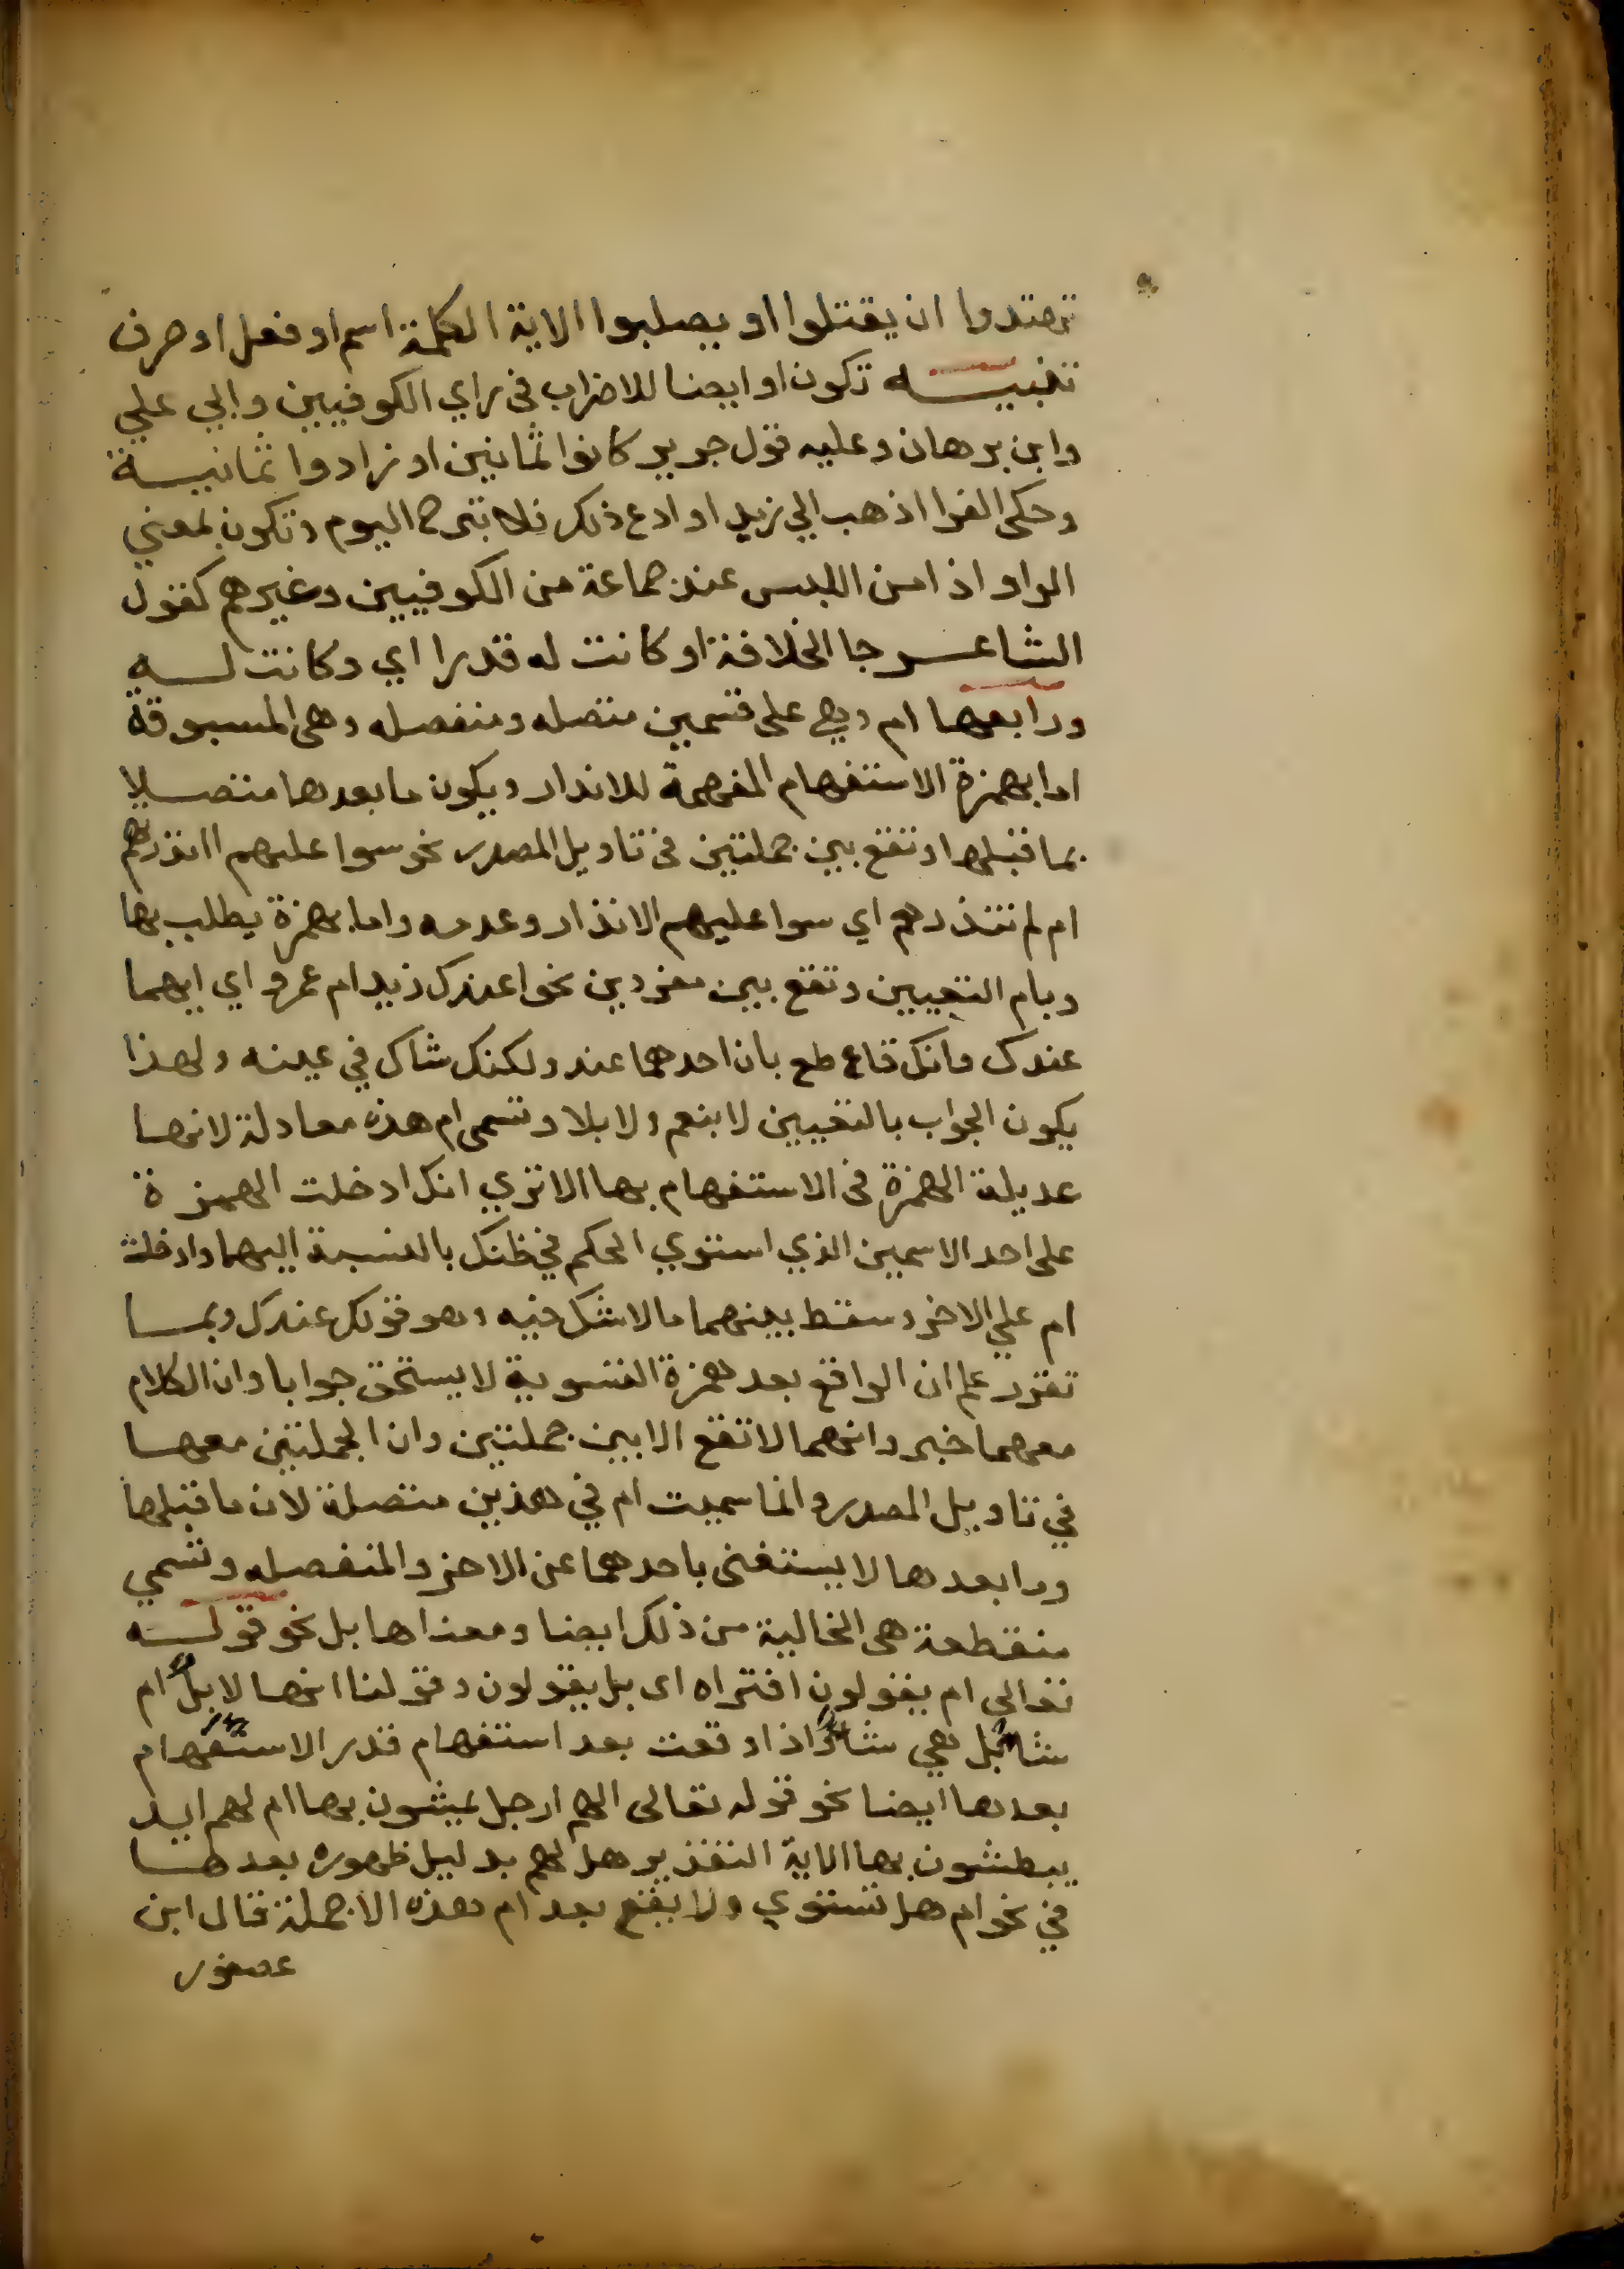 تهتدوا ان يقتلوا او يصلبوا الاية الكلمة اسم او فعل او حرف
تنبيه تكون او ايضا للاضراب في راي الكوفيين وابي علي
وابن برهان وعليه قول جرير كانوا ثمانين او زادوا ثمانية
وحكى الفرا اذهب الي زيد او ادع ذلك فلا تبرح اليوم وتكون بمعني
الواو اذ امن اللبس عند جماعة من الكوفيين وغيرهم كقول
الشاعر جا الخلافة او كانت له قدرا اي وكانت له
ورابعها ام وهي على قسمين متصله ومنفصله وهى المسبوقة
اما بهمزة الاستفهام المفهمة للانذار ويكون ما بعدها متصلا
بما قبلها وتقع بين جملتين فى تاويل المصدر نحو سوا عليهم اانذرتهم
ام لم تنذرهم اي سوا عليهم الانذار وعدمه واما بهمزة يطلب بها
وبام التعيين وتقع بين مفردين نحو اعندك زيد ام عمرو اي ايهما
عندك فانك قاع طع بان احدهما عند ولكنك شاك في عينه ولهذا
يكون الجواب بالتعيين لا بنعم ولا بلا وتسمى ام هذه معادلة لانها
عديلة الهمزة فى الاستفهام بها الا تري انك ادخلت الهمزة
على احد الاسمين الذي استوي الحكم في ظنك بالنسبة اليهما وادخلت
ام علي الاخر وسقط بينهما ما لا شك فيه وهو قولك عندك وبما
تقرر علم ان الواقع بعد همزة التسوية لا يستحق جوابا وان الكلام
معهما خبر وانهما لا تقع الا بين جملتين وان الجملتين معها
في تاويل المصدر وانما سميت ام في هذين متصلة لان ما قبلها
وما بعدها لا يستغنى باحدهما عن الاخر والمنفصله وتسمي
منقطعة هى الخالية من ذلك ايضا ومعناها بل نحو قوله
تعالي ام يقولون افتراه اى بل يقولون وقولنا انها لابل ام
شا بل هي شا اذا وقعت بعد استفهام قدر الاستفهام
بعدها ايضا نحو قوله تعالى الهم ارجل يمشون بها ام لهم ايد
يبطشون بها الاية التقدير هل لهم بدليل ظهوره بعدها
في نحو ام هل تستوي ولا يقع بعد ام هذه الا جملة قال ابن
عصفور